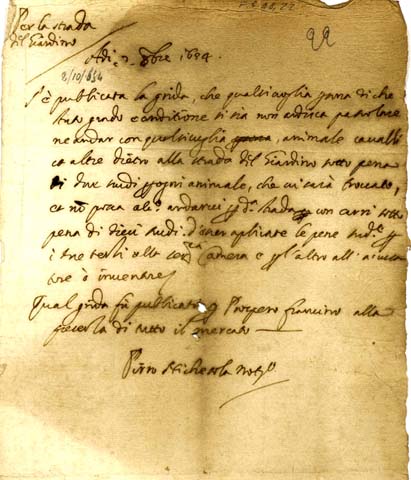 Per la strada
del Giardino
22
Adi 2. 8bre 1654.
2/10/654
S'è publicata la grida, che qualsivoglia persona di che
stato grado e conditione si sia non ardisca pascolare
ne andar con qualsivoglia animale cavalli
et altre dietro alla strada del Giardino sotto pena
di due scudi per ogni animale, che vi sarà trovato,
et non possa alc.o andarci per d.a strada con carri sotto
pena di dieci scudi d'esser aplicate le pene sud.e
i due terzi alla Camera e per l'altro all'accusa
tore ò inventore
Qual grida fu publicata per Prospero Francino alla
presenza di tutto il mercato
Pirro Nicheola Not.o